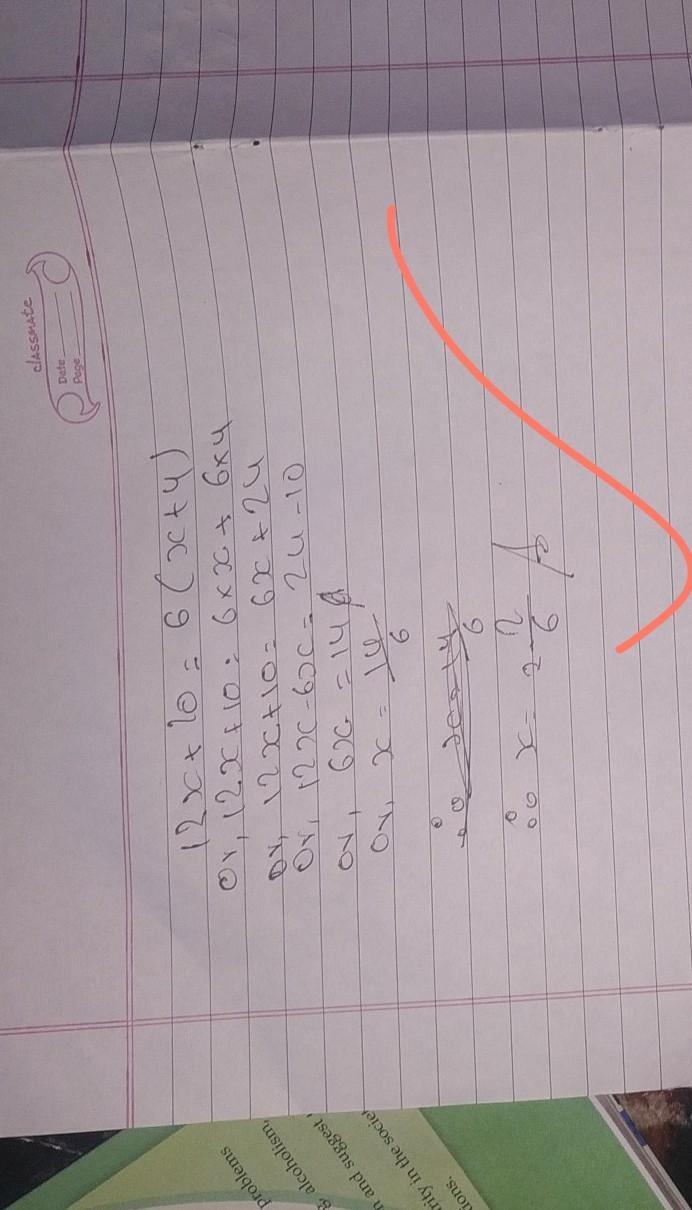 classmate
Date
Page
12x + 10 = 6 (x + 4)
Or, 12x + 10 = 6 × x + 6 × 4
Or, 12x + 10 = 6x + 24
Or, 12x - 6x = 24 - 10
Or, 6x = 14
Or, x = 14/6
∴ x = 2 2/6
problems
alcoholism,
and suggest
rity in the societ
ions.